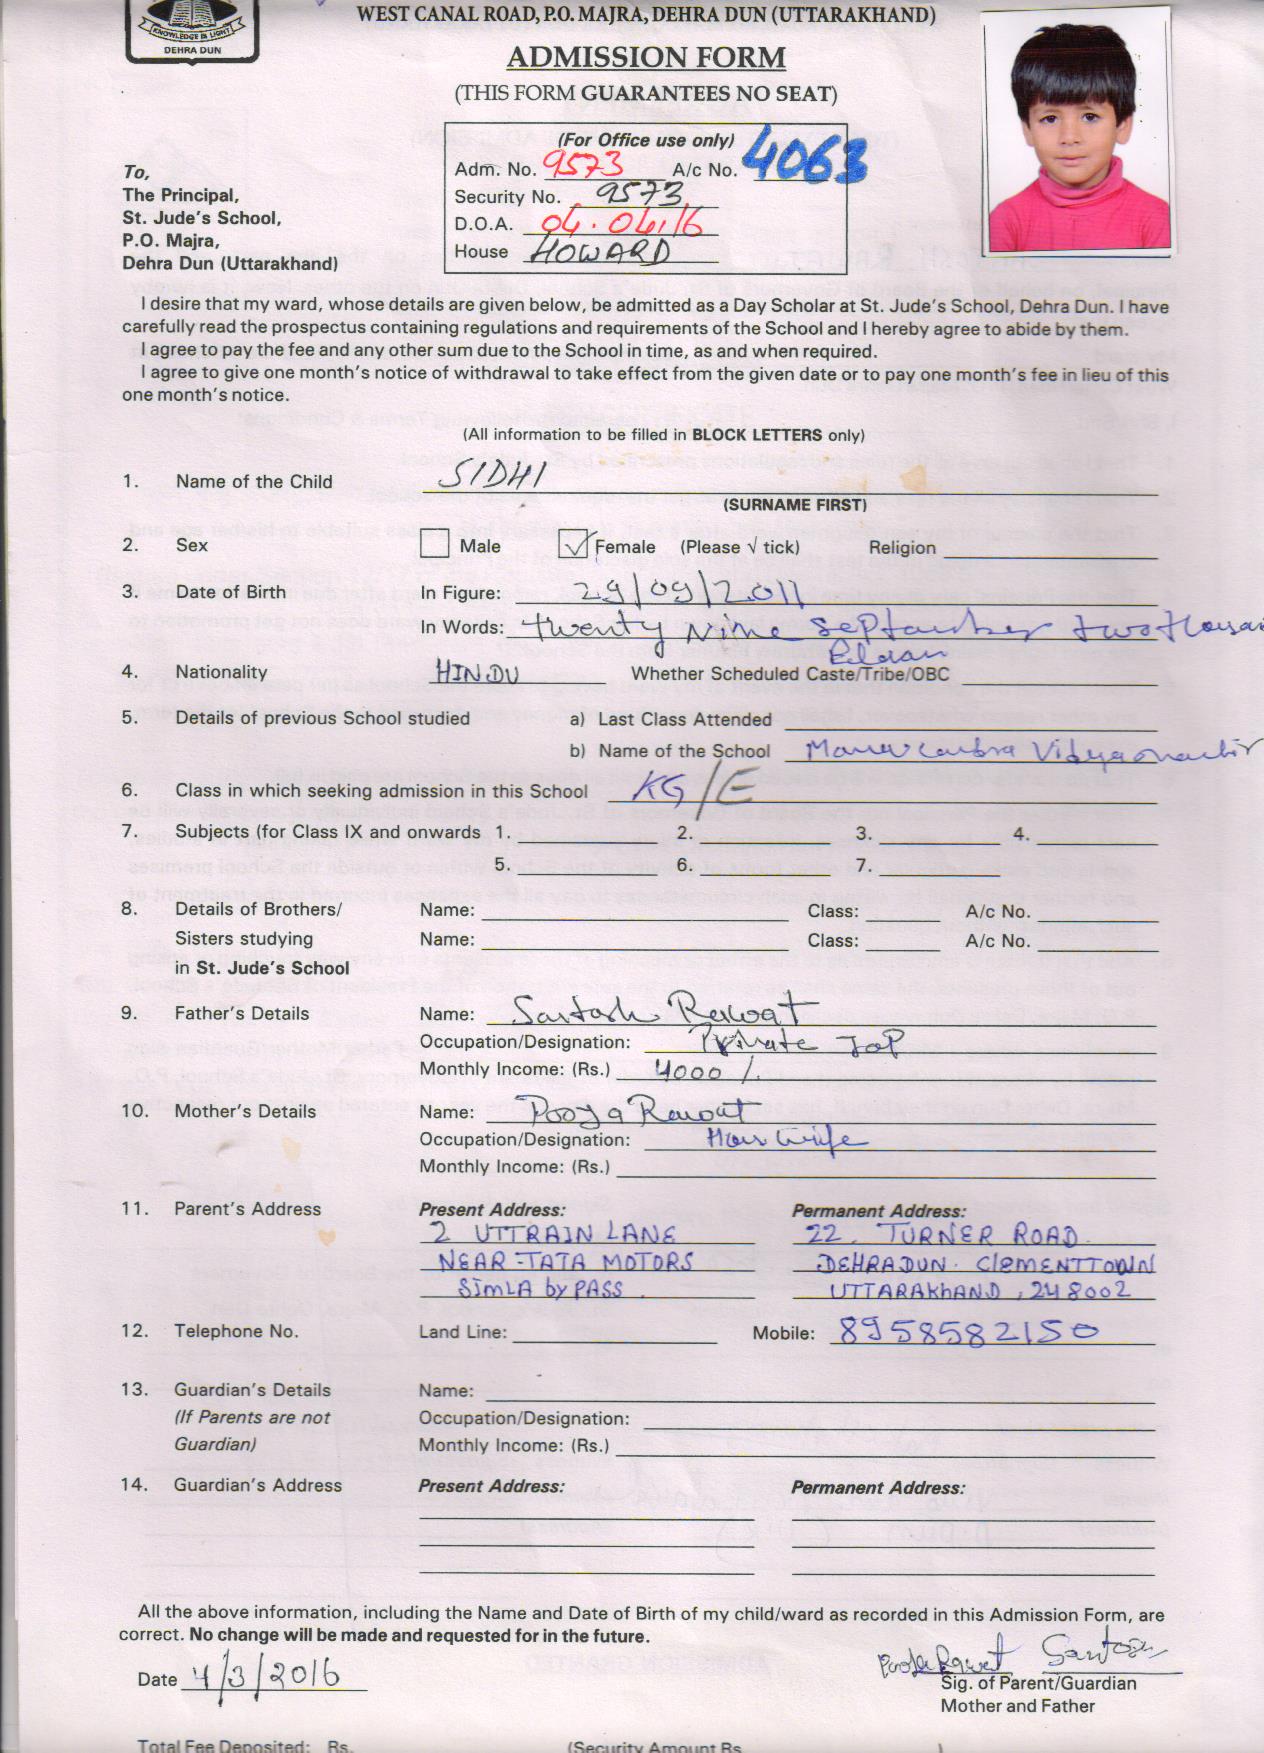 KNOWLEDGE IS LIGHT
DEHRA DUN
WEST CANAL ROAD, P.O. MAJRA, DEHRA DUN (UTTARAKHAND)
ADMISSION FORM
(THIS FORM GUARANTEES NO SEAT)
(For Office use only)
Adm. No. 9573 A/c No. 4063
Security No. 9573
D.O.A. 04.04.16
House HOWARD
To,
The Principal,
St. Jude's School,
P.O. Majra,
Dehra Dun (Uttarakhand)
I desire that my ward, whose details are given below, be admitted as a Day Scholar at St. Jude's School, Dehra Dun. I have
carefully read the prospectus containing regulations and requirements of the School and I hereby agree to abide by them.
I agree to pay the fee and any other sum due to the School in time, as and when required.
I agree to give one month's notice of withdrawal to take effect from the given date or to pay one month's fee in lieu of this
one month's notice.
(All information to be filled in BLOCK LETTERS only)
1. Name of the Child SIDHI
(SURNAME FIRST)
2. Sex Male Female (Please √ tick) Religion
3. Date of Birth In Figure: 29/09/2011
In Words: Twenty Nine September two
4. Nationality HINDU Whether Scheduled Caste/Tribe/OBC
5. Details of previous School studied a) Last Class Attended
b) Name of the School
6. Class in which seeking admission in this School KG/E
7. Subjects (for Class IX and onwards 1. 2. 3. 4.
5. 6. 7.
8. Details of Brothers/ Name: Class: A/c No.
Sisters studying Name: Class: A/c No.
in St. Jude's School
9. Father's Details Name: Santosh Rawat
Occupation/Designation: Private JoP
Monthly Income: (Rs.) 4000/.
10. Mother's Details Name: Pooja Rawat
Occupation/Designation: Hous wife
Monthly Income: (Rs.)
11. Parent's Address Present Address: Permanent Address:
2 UTTRAIN LANE 22. TURNER ROAD
NEAR-TATA MOTORS DEHRADUN. CLEMENTTOWN
SIMLA by PASS. UTTARAKHAND, 248002
12. Telephone No. Land Line: Mobile: 8958582150
13. Guardian's Details Name:
(If Parents are not Occupation/Designation:
Guardian) Monthly Income: (Rs.)
14. Guardian's Address Present Address: Permanent Address:
All the above information, including the Name and Date of Birth of my child/ward as recorded in this Admission Form, are
correct. No change will be made and requested for in the future.
Date 4/3/2016 Pooja Rawat Santosh
Sig. of Parent/Guardian
Mother and Father
Total Fee Deposited: Rs. (Security Amount Rs. )